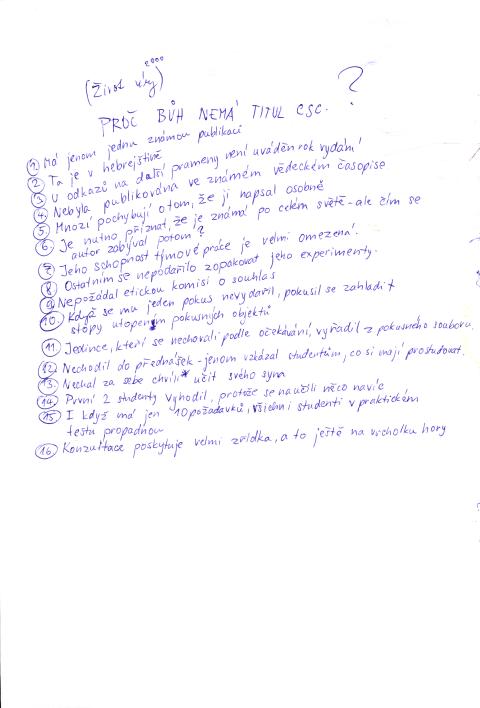 2000
(Život víry)
?
PROČ BŮH NEMÁ TITUL CSC.
1. Má jenom jednu známou publikaci
2. Ta je v hebrejštině
3. U odkazů na další prameny není uváděn rok vydání
4. Nebyla publikována ve známém vědeckém časopise
5. Mnozí pochybují o tom, že ji napsal osobně
6. Je nutno přiznat, že je známá po celém světě - ale čím se
autor zabýval potom?
7. Jeho schopnost týmové práce je velmi omezená.
8. Ostatním se nepodařilo zopakovat jeho experimenty.
9. Nepožádal etickou komisi o souhlas
10. Když se mu jeden pokus nevydařil, pokusil se zahladit
stopy utopením pokusných objektů
11. Jedince, kteří se nechovali podle očekávání, vyřadil z pokusného souboru.
12. Nechodil do přednášek - jenom vzkázal studentům, co si mají prostudovat.
13. Nechal za sebe chvíli učit svého syna
14. První 2 studenty vyhodil, protože se naučili něco navíc
15. I když má jen 10 požadavků, všichni studenti v praktickém
testu propadnou
16. Konzultace poskytuje velmi zřídka, a to ještě na vrcholku hory